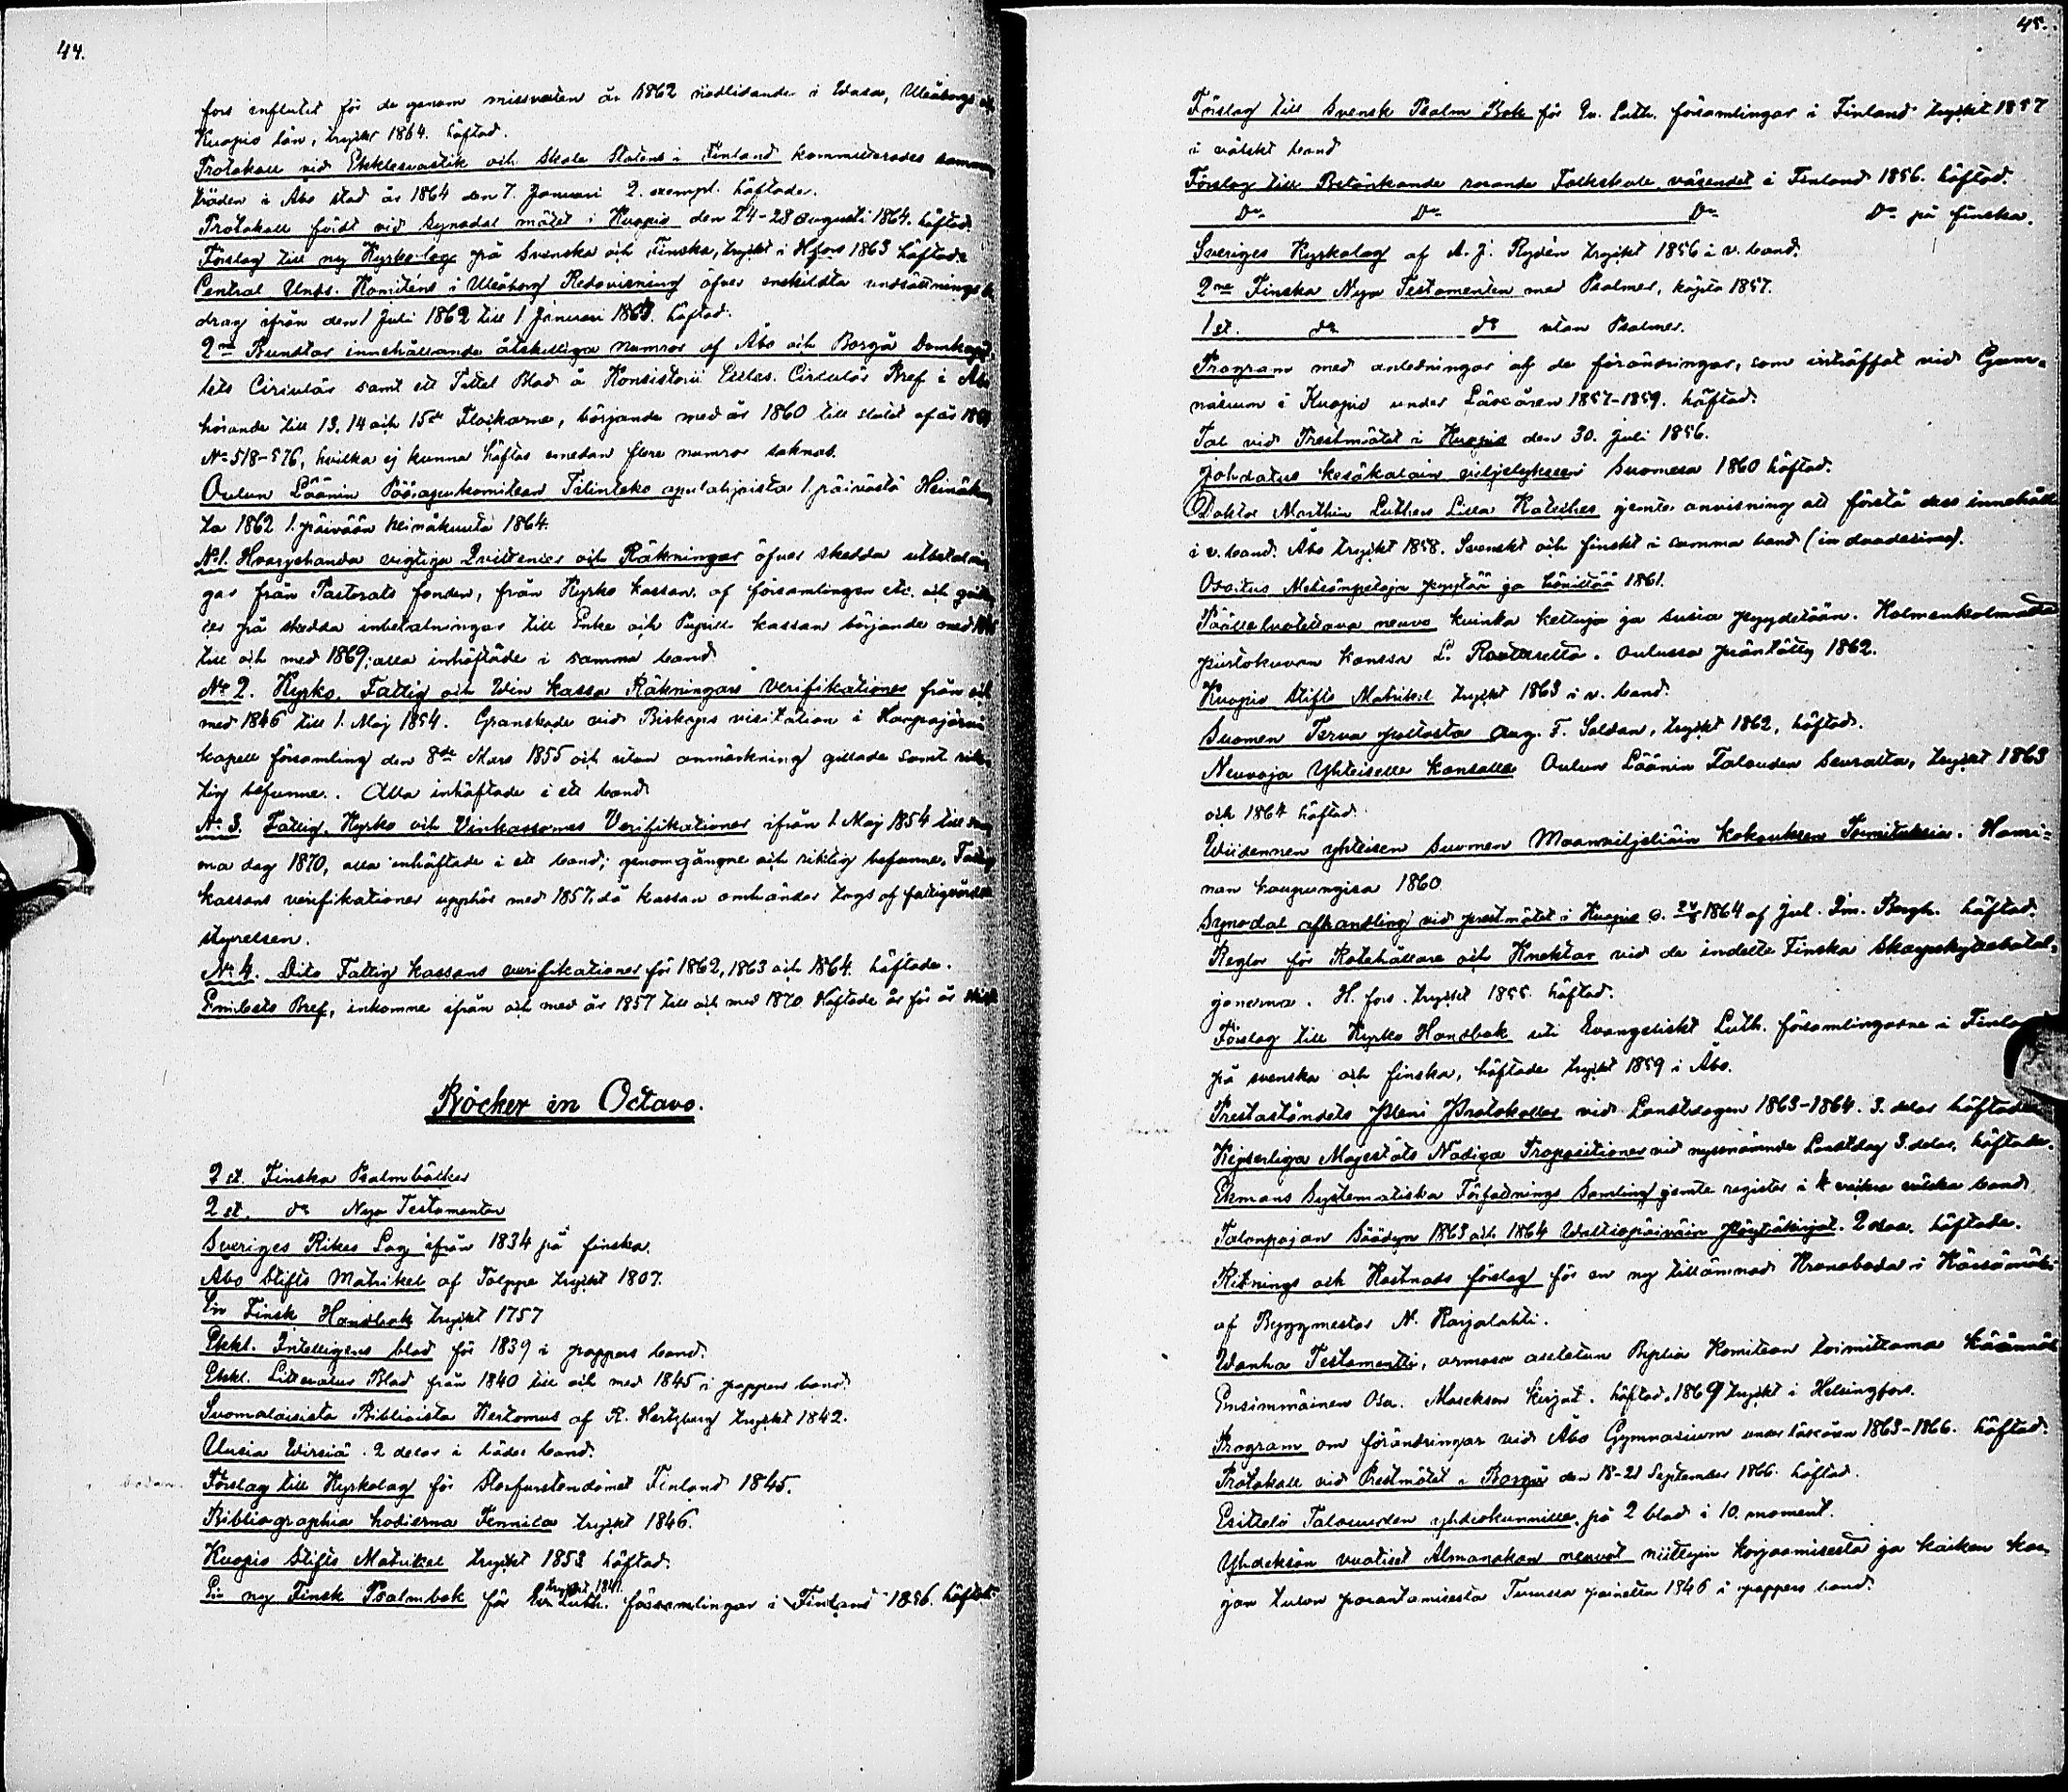 44.
fors influtet för de genom missvexten år 1862 nödlidande i Wasa, Uleåborgs
Kuopio län, tryckt 1864. häftad.
Protokoll vid Ekklesiastik och Skole Statens i Finland kommitterades samman
träden i Åbo stad år 1864 den 7. Januari 2. exempl. häftade.
Protokoll fördt vid Synodal mötet i Kuopio den 24-28 Augusti 1864. häftad.
Förslag till ny Kyrko-lag på Svenska och Finska, tryckt i H:fors 1863 häftade
Central Unds. Komiténs i Uleåborg Redovisning öfver enskildta undsättnings
drag ifrån den 1 Juli 1862 till 1 Januari 1863. häftad.
2ne Bundtar innehållande åtskilliga numror af Åbo och Borgå Domkapi
tels Circulär samt ett Tittel Blad å Konsistorii Eccles. Circulär Bref i Åbo
hörande till 13, 14 och 15de Flockarne, börjande med år 1860 till slutet af år
No 518-576, hvilka ej kunna häftas emedan flere numror saknas.
Oulun Läänin Pääapukomitean Tilinteko apulahjoista 1. päivästä Heinäku
ta 1862 1. päivään heinäkuuta 1864.
No 1. Hvarjehanda vigtiga Qvittenier och Räkningar öfver skedda utbetalnin
gar från Pastorats fonden, från Kyrko kassan, af församlingen etc. och
ier på skedda inbetalningar till Enke och Pupill kassan börjande med
till och med 1869; alla inhäftade i samma band.
No 2. Kyrko, Fattig och Win kassa Räkningars Verifikationer från och
med 1846 till 1. Maj 1854. Granskade vid Biskops visitation i Haapajärvi
kapell församling den 8de Mars 1855 och utan anmärkning gillade samt rik
tig befunne. Alla inhäftade i ett band
No 3. Fattig, Kyrko och Vinkassornas Verifikationer ifrån 1 Maj 1854 till sam
ma dag 1870, alla inhäftade i ett band; genomgångne och riktig befunne. Fattig
kassans verifikationer upphör med 1857, då kassan omhänder togs af fattigvårds
styrelsen.
No 4. Dito Fattig kassans verifikationer för 1862, 1863 och 1864. häftade.
Embets Bref, inkomne ifrån och med år 1857 till och med 1870 Häftade år för år
Böcker in Octavo.
2 st. Finska Psalmböcker
2 st. do Nya Testamenter
Sveriges Rikes Lag ifrån 1834 på finska.
Åbo Stifts Matrikel af Tolppo tryckt 1807.
En Finsk Handbok tryckt 1757
Ekkl. Intelligens blad för 1839 i pappers band.
Ekkl. Litteratur Blad från 1840 till och med 1845 i pappers band.
Suomalaisista Biblioista Kertomus af R. Hertzberg tryckt 1842.
Uusia Wirsiä. 2 delar i läder band.
Förslag till Kyrkolag för Storfurstendömet Finland 1845.
Bibliographia hodierna Fennica tryckt 1846.
Kuopio Stifts Matrikel tryckt 1853 häftad.
tryckt 1841.
En ny Finsk Psalmbok för Ev. Luth. församlingar i Finland 1856. häftad.
45.
Förslag till Svensk Psalm Bok för Ev. Luth. församlingar i Finland tryckt 1857
i välskt band
Förslag till Betänkande rörande Folkskole väsendet i Finland 1856. häftad.
Do Do Do Do på finska.
Sveriges Kyrkolag af A. J. Rydén tryckt 1856 i v. band.
2ne Finska Nya Testamenten med Psalmer, köpta 1857.
1 st. do do utan Psalmer.
Program med anledningar af de förändringar, som inträffat vid Gym-
nasium i Kuopio under Läseåren 1857-1859. häftad.
Tal vid Prestmötet i Kuopio den 30. Juli 1856.
Johdatus kesäkalain viljelykseen Suomessa 1860 häftad.
Doktor Marthin Luthers Lilla Kateches jemte anvisning att förstå dess innehåll
i v. band. Åbo tryckt 1858. Svenskt och finskt i samma band (in duodesimo).
Osoitus Metsänpetoja pyytää ja hävittää 1861.
Päälleluotettava neuvo kuinka kettuja ja susia pyydetään. Kolmenkolmatta
piirtokuvan kanssa L. Oulussa präntätty 1862.
Kuopio Stifts Matrikel tryckt 1863 i v. band.
Suomen Terva Aug. F. Soldan, tryckt 1862, häftad.
Neuvoja Yhteiselle kansalle Oulun Läänin Talouden Seuralta, tryckt 1863
och 1864 häftad.
Wiidennen yhteisen Suomen Maanviljeliäin kokouksen Toimituksia. Hami-
nan kaupungissa 1860.
Synodal afhandling vid prestmötet i Kuopio 1864 af Jul. Im. Bergh. häftad.
Reglor för Rotehållare och Knektar vid de indelte Finska Skarpskyttebatal-
jonerna. H.fors. tryckt 1855. häftad.
Förslag till Kyrko Handbok uti Evangeliskt Luth. församlingarne i
på svenska och finska, häftade tryckt 1859 i Åbo.
Prestaståndets Pleni Protokoller vid Landtdagen 1863-1864. 3. delar häftade
Kejserliga Majestäts Nådiga Propositioner vid nyssnämnde Landtdag 3. delar. häftade.
Ekmans Systematiska Författnings Samling jemte register i 4 välska band
Talonpojan Säädyn 1863 och 1864 Waltiopäiväin Pöytäkirjat. 2 osaa. häftade.
Ritnings och Kostnads förslag för en ny tillämnad Kronobodar i Kärsämäki
af Byggmestar N. Karjalahti.
Wanha Testamentti, armossa asetetun Biplia Komitean toimittama Käännös
Ensimmäinen Osa. Moseksen kirjat. häftad. 1869 tryckt i Helsingfors.
Program om förändringar vid Åbo Gymnasium under läseåren 1863-1866. häftad.
Protokoll vid Prestmötet i Borgå den 18-21 September 1866. häftad.
Esittelö Talouuden yhdiskunnille, på 2 blad i 10. moment.
Yhdeksän vuotiset Almanakan neuvot niittyin korjaamisesta ja kaiken kar-
jan tulon parantamisesta Turussa painettu 1846 i pappers band.